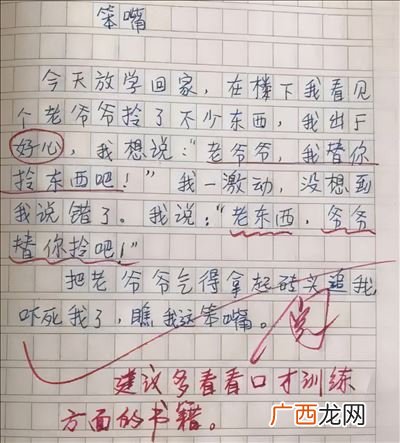 笨嘴
今天放学回家，在楼下我看见
个老爷爷拎了不少东西，我出于
好心，我想说：“老爷爷，我替你
拎东西吧！”我一激动，没想到
我说错了。我说：“老东西，爷爷
替你拎吧！”
把老爷爷气得拿起砖头追我
吓死我了，瞧我这笨嘴。
阅
建议多看看口才训练
方面的书籍。
广西龙网